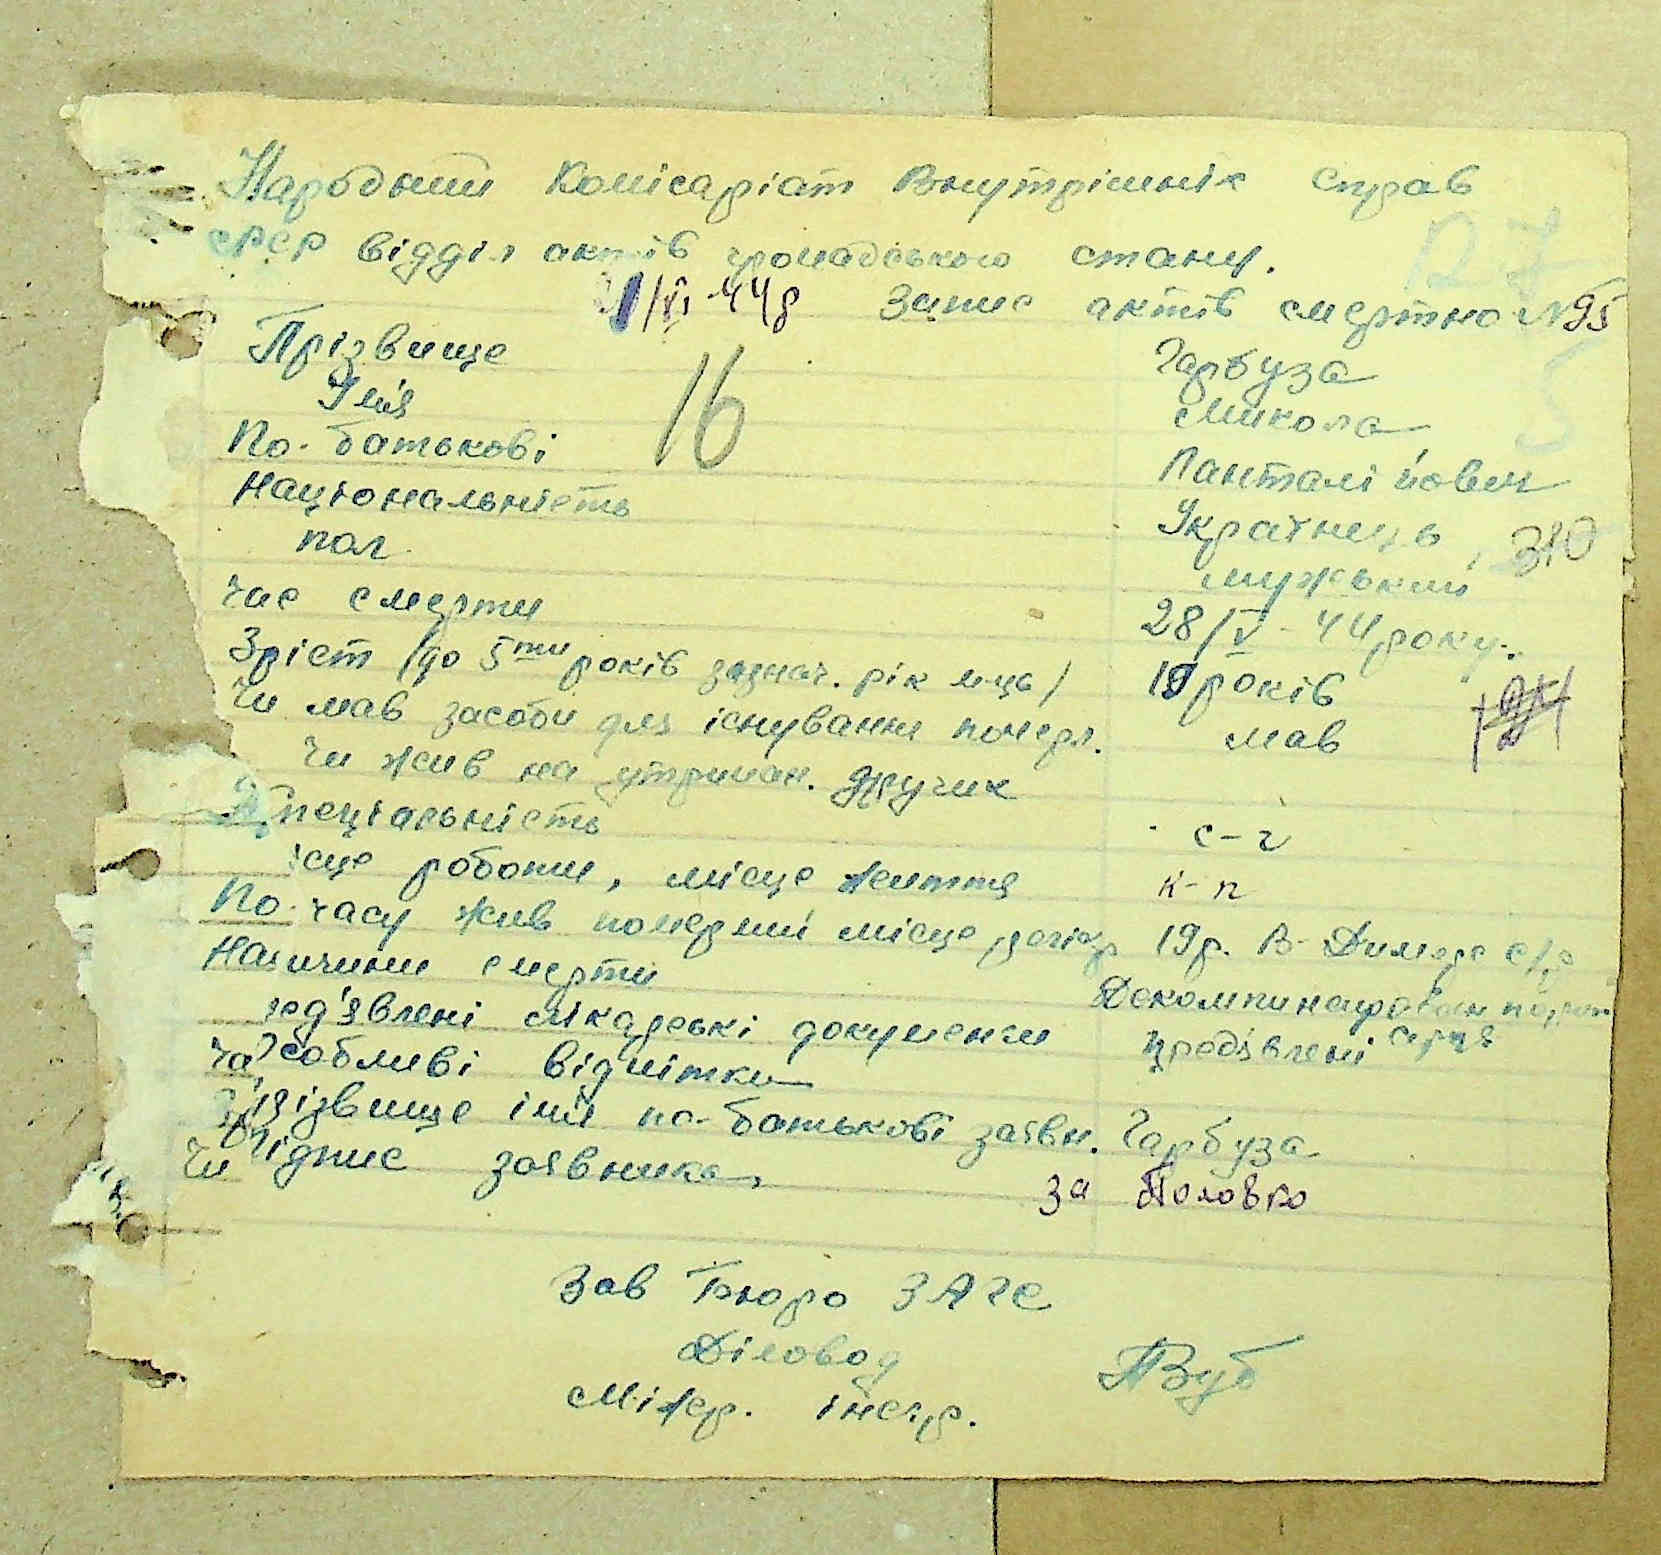 Народний Комісаріат Внутрішніх справ
СРСР відділ актів громадського стану.
1/VI-44р Запис актів смертно N 95
Прізвище Гарбуза
Ім'я 16 Микола
По-батькові Панталійович
Національність Українець 310
пол мужський
час смерти 28/V-44 року.
Зріст /до 5ти років зазнач. рік м-ць/ 19 років
Чи мав засоби для існування померл. мав
Чи жив на утриман. других
Спеціальність с-г
ісце роботи, місце життя к-п
По часу жив померший місце 19р. В-Димерс с/р
смерти
ред'явлені лікарські документи предявлені серця
ча собливі відмітки
різвище імя по-батькові заявн. Гарбуза
Чи ідпис заявника за Половко
Зав Бюро ЗАГС
Діловод
Міжр. інспр.